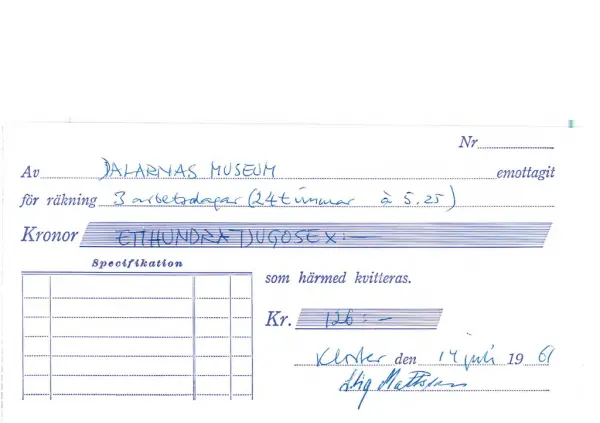 Nr
Av DALARNAS MUSEUM emottagit
för räkning 3 arbetsdagar (24 timmar à 5.25)
Kronor ETTHUNDRATJUGOSEX:—
Specifikation
som härmed kvitteras.
Kr. 126:—
Kloster den 14 juli 1961
Stig Mattsson